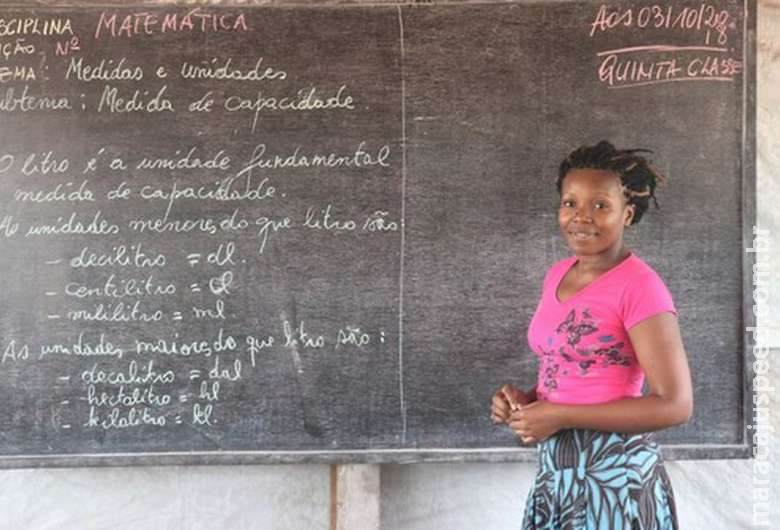 DISCIPLINA MATEMÁTICA
LIÇÃO Nº
TEMA: Medidas e unidades
Subtema: Medida de capacidade.
O litro é a unidade fundamental
medida de capacidade.
As unidades menores do que litro são:
- decilitro = dl.
- centilitro = cl
- mililitro = ml
As unidades maiores do que litro são:
- decalitro = dal
- hectolitro = hl
- kilolitro = kl.
Aos 03/10/2018
QUINTA CLASSE
maracajuspeed.com.br